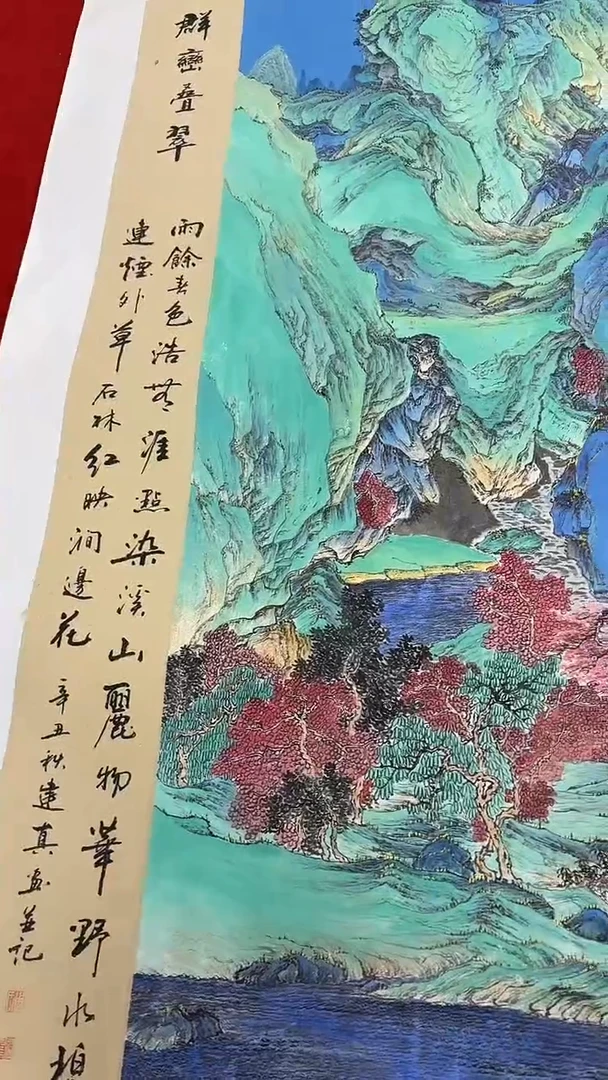 群峦叠翠
雨餘春色浩無涯點染溪山麗物華野水碧
連煙外草石林紅映澗邊花辛丑秋建真画並記